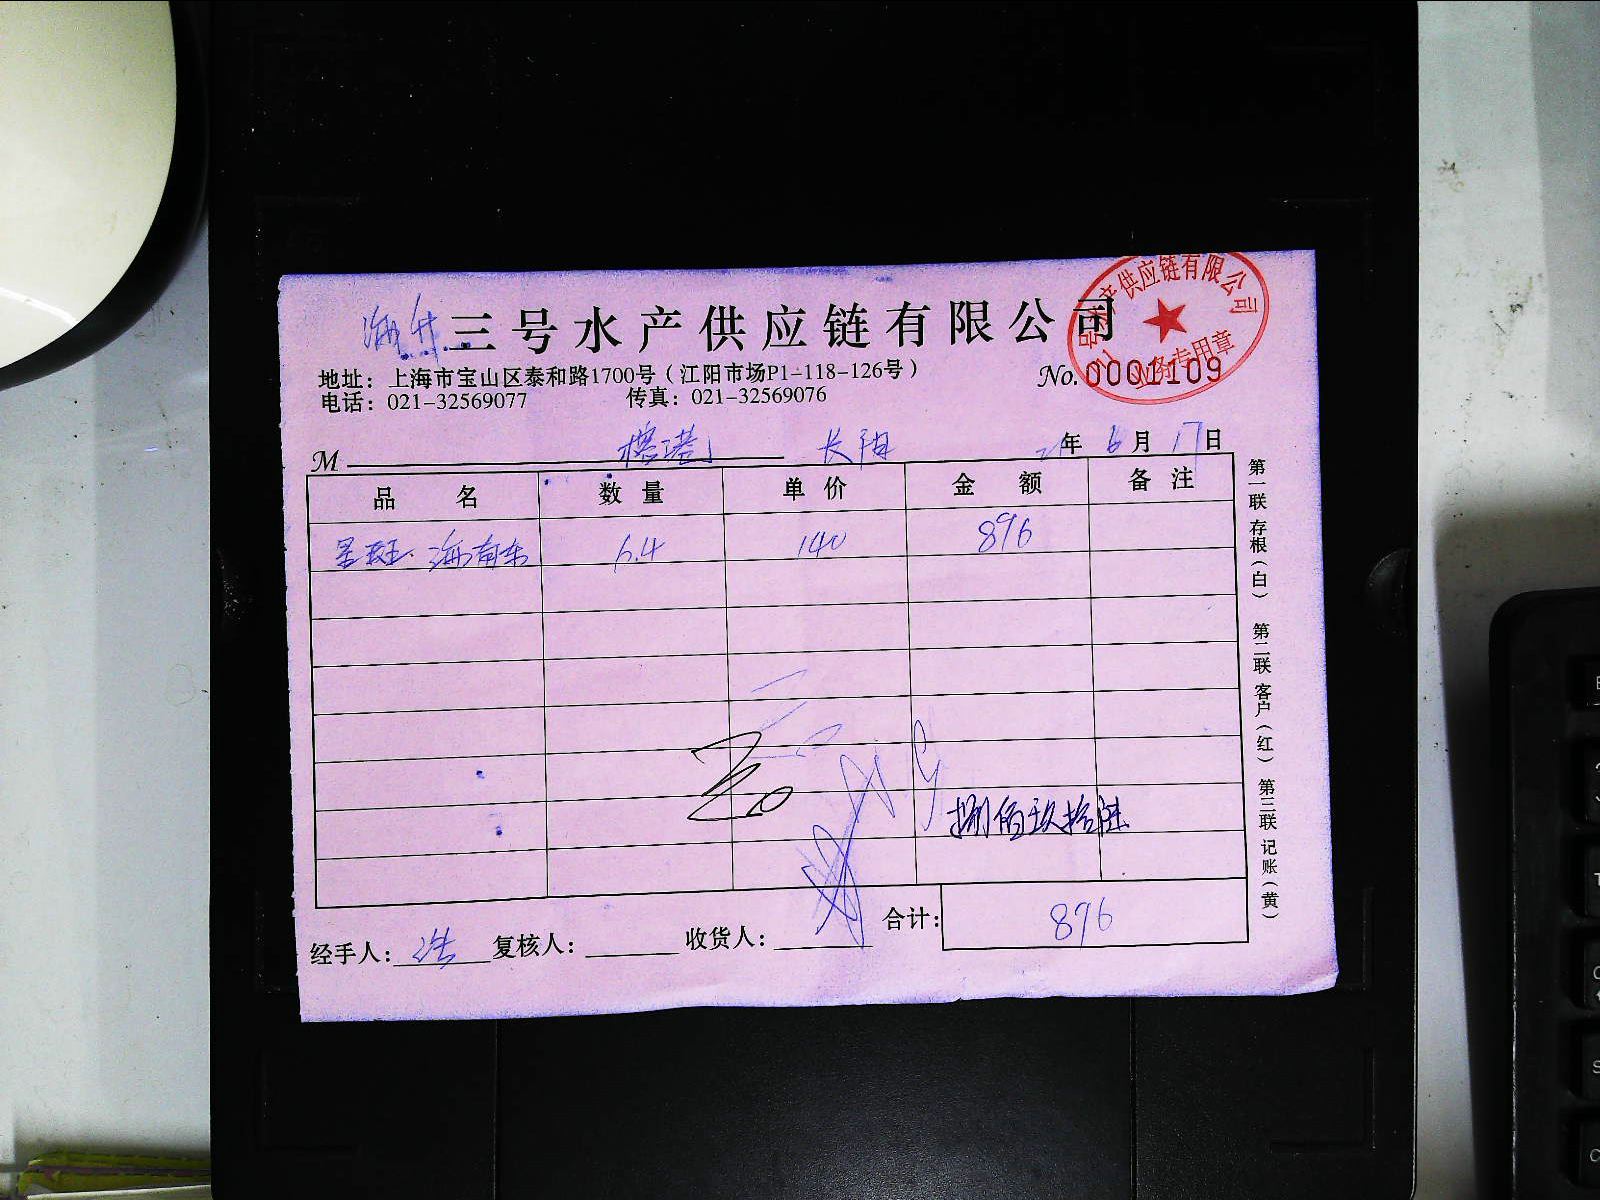 三号水产供应链有限公司
产供应链有限公司
业务专用章
地址：上海市宝山区泰和路1700号（江阳市场P1-118-126号）
No.0001109
电话：021-32569077 传真：021-32569076
M 年 6 月 17 日
品名 数量 单价 金额 备注
海南东 6.4 140 896
捌佰玖拾陆
合计：896
经手人：浩 复核人： 收货人：
第一联 存根（白） 第二联 客户（红） 第三联 记账（黄）